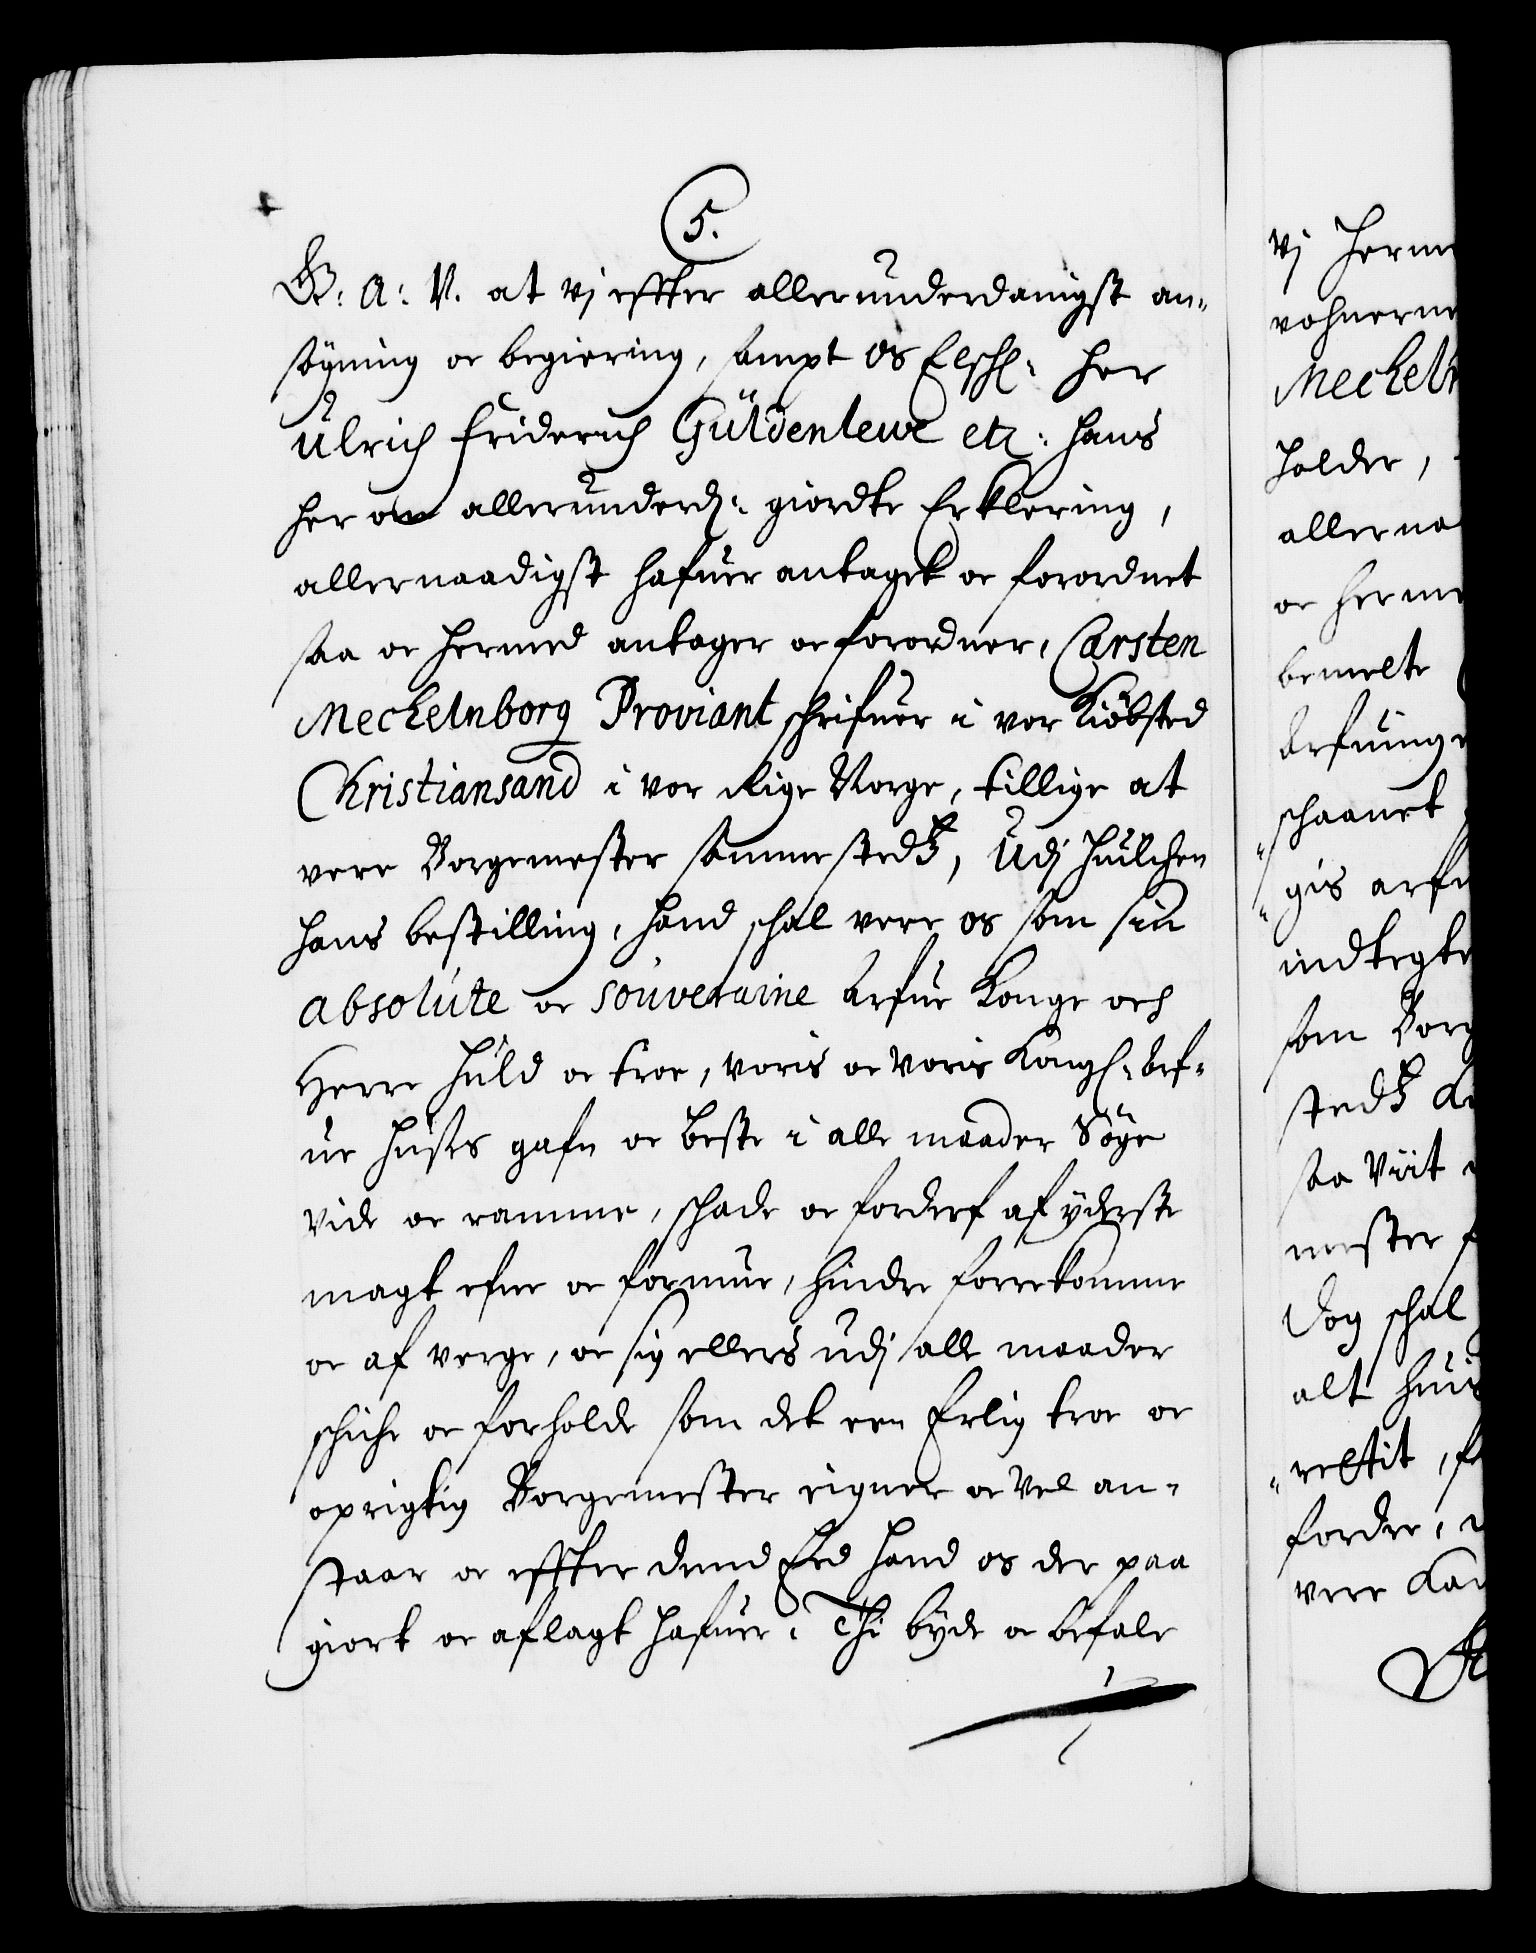 5.
G: A: V. at vj effter allerunderdanigst an-
søgning oc begiering, sampt os Elschl: Her
Ulrich Friderich Güldenlewe etc: hans
her om allerunderd: giordte Erklering,
allernaadigst hafuer antaget oc forordnet
saa oc hermed antager oc forordner, Carsten
Mechelnborg Proviant schrifuer i vor Kiøbsted
Christiansand i vor Rige Norge, tillige at
vere Borgemester sammestedtz, Udj huilchen
hans bestilling, hand schal vere os som sin
absolute oc souveraine Arfue Konge och
Herre huld oc troe, voris oc voris Kongl: Arf-
ue huses gafn oc beste i alle maader Søge
vide oc ramme, schade oc forderf af yderste
magt efne oc formue, hindre forrekomme
oc af verge, oc sig ellers udj alle maader
schiche oc forholde som det een Erlig troe oc
oprigtig Borgemester eigner oc vel an-
staar oc effter dend Eed hand os der paa
giort oc aflagt hafuer. Thi byde oc befale
vj herme
vohnerne
Mecheln
holder,
allerna
oc herme
bemelte
Arfuinge
schaanet
gis arfu
indtegte
som Borg
stedtz
saa viit
mester
Dog schal
alt huis
reltit,
fordre,
vere Kan